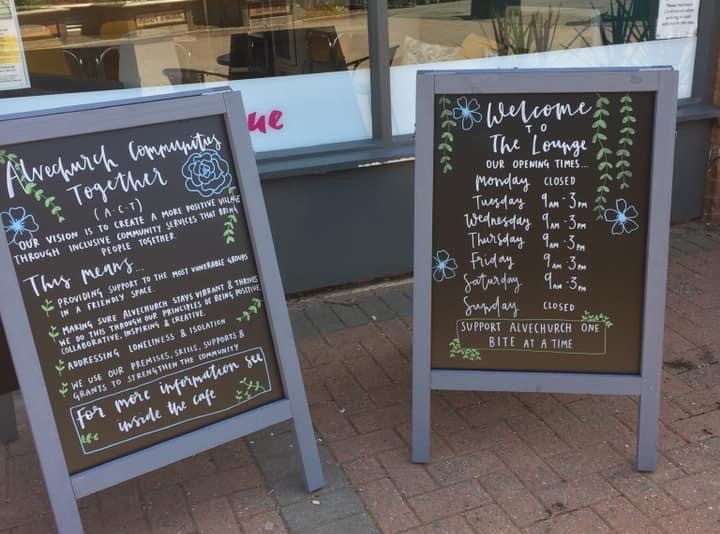 Alvechurch Communities
Together
(A·C·T)
OUR VISION IS TO CREATE A MORE POSITIVE VILLAGE
THROUGH INCLUSIVE COMMUNITY SERVICES THAT BRING
PEOPLE TOGETHER.
This means...
PROVIDING SUPPORT TO THE MOST VULNERABLE GROUPS
IN A FRIENDLY SPACE.
MAKING SURE ALVECHURCH STAYS VIBRANT & THRIVES
WE DO THIS THROUGH OUR PRINCIPLES OF BEING POSITIVE,
COLLABORATIVE, INSPIRING & CREATIVE.
ADDRESSING LONELINESS & ISOLATION
WE USE OUR PREMISES, SKILLS, SUPPORTS &
GRANTS TO STRENGTHEN THE COMMUNITY
For more information see
inside the cafe
ue
Welcome
TO
The Lounge
OUR OPENING TIMES...
Monday CLOSED
Tuesday 9AM-3PM
Wednesday 9AM-3PM
Thursday 9AM-3PM
Friday 9AM-3PM
Saturday 9AM-3PM
Sunday CLOSED
SUPPORT ALVECHURCH ONE
BITE AT A TIME